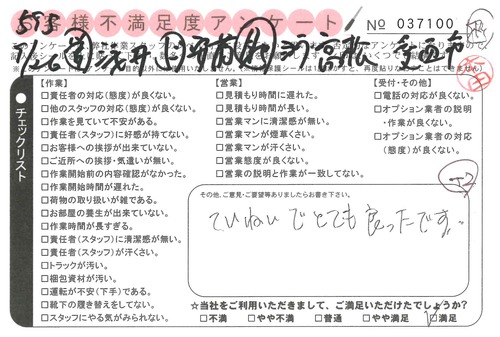 お客様不満足度アンケート
No 037100
チェックリスト
【作業】
□責任者の対応(態度)が良くない。
□他のスタッフの対応(態度)が良くない。
□作業を見ていて不安がある。
□責任者(スタッフ)に好感が持てない。
□お客様への挨拶が出来ていない。
□ご近所への挨拶・気遣いが無い。
□作業開始前の内容確認がなかった。
□作業開始時間が遅れた。
□荷物の取り扱いが雑である。
□お部屋の養生が出来ていない。
□作業時間が長すぎる。
□責任者(スタッフ)に清潔感が無い。
□責任者(スタッフ)が汗くさい。
□トラックが汚い。
□梱包資材が汚い。
□運転が不安(下手)である。
□靴下の履き替えをしてない。
□スタッフにやる気がみられない。
【営業】
□見積もり時間に遅れた。
□見積もり時間が長い。
□営業マンに清潔感が無い。
□営業マンが煙草くさい。
□営業マンが汗くさい。
□営業態度が良くない。
□営業の説明と作業が一致してない。
【受付・その他】
□電話の対応が良くない。
□オプション業者の説明
・作業が良くない。
□オプション業者の対応
(態度)が良くない。
その他、ご意見・ご要望等ありましたらお書き下さい。
ていねいでとても良ったです。
☆当社をご利用いただきまして、ご満足いただけたでしょうか?
□不満 □やや不満 □普通 □やや満足 □満足